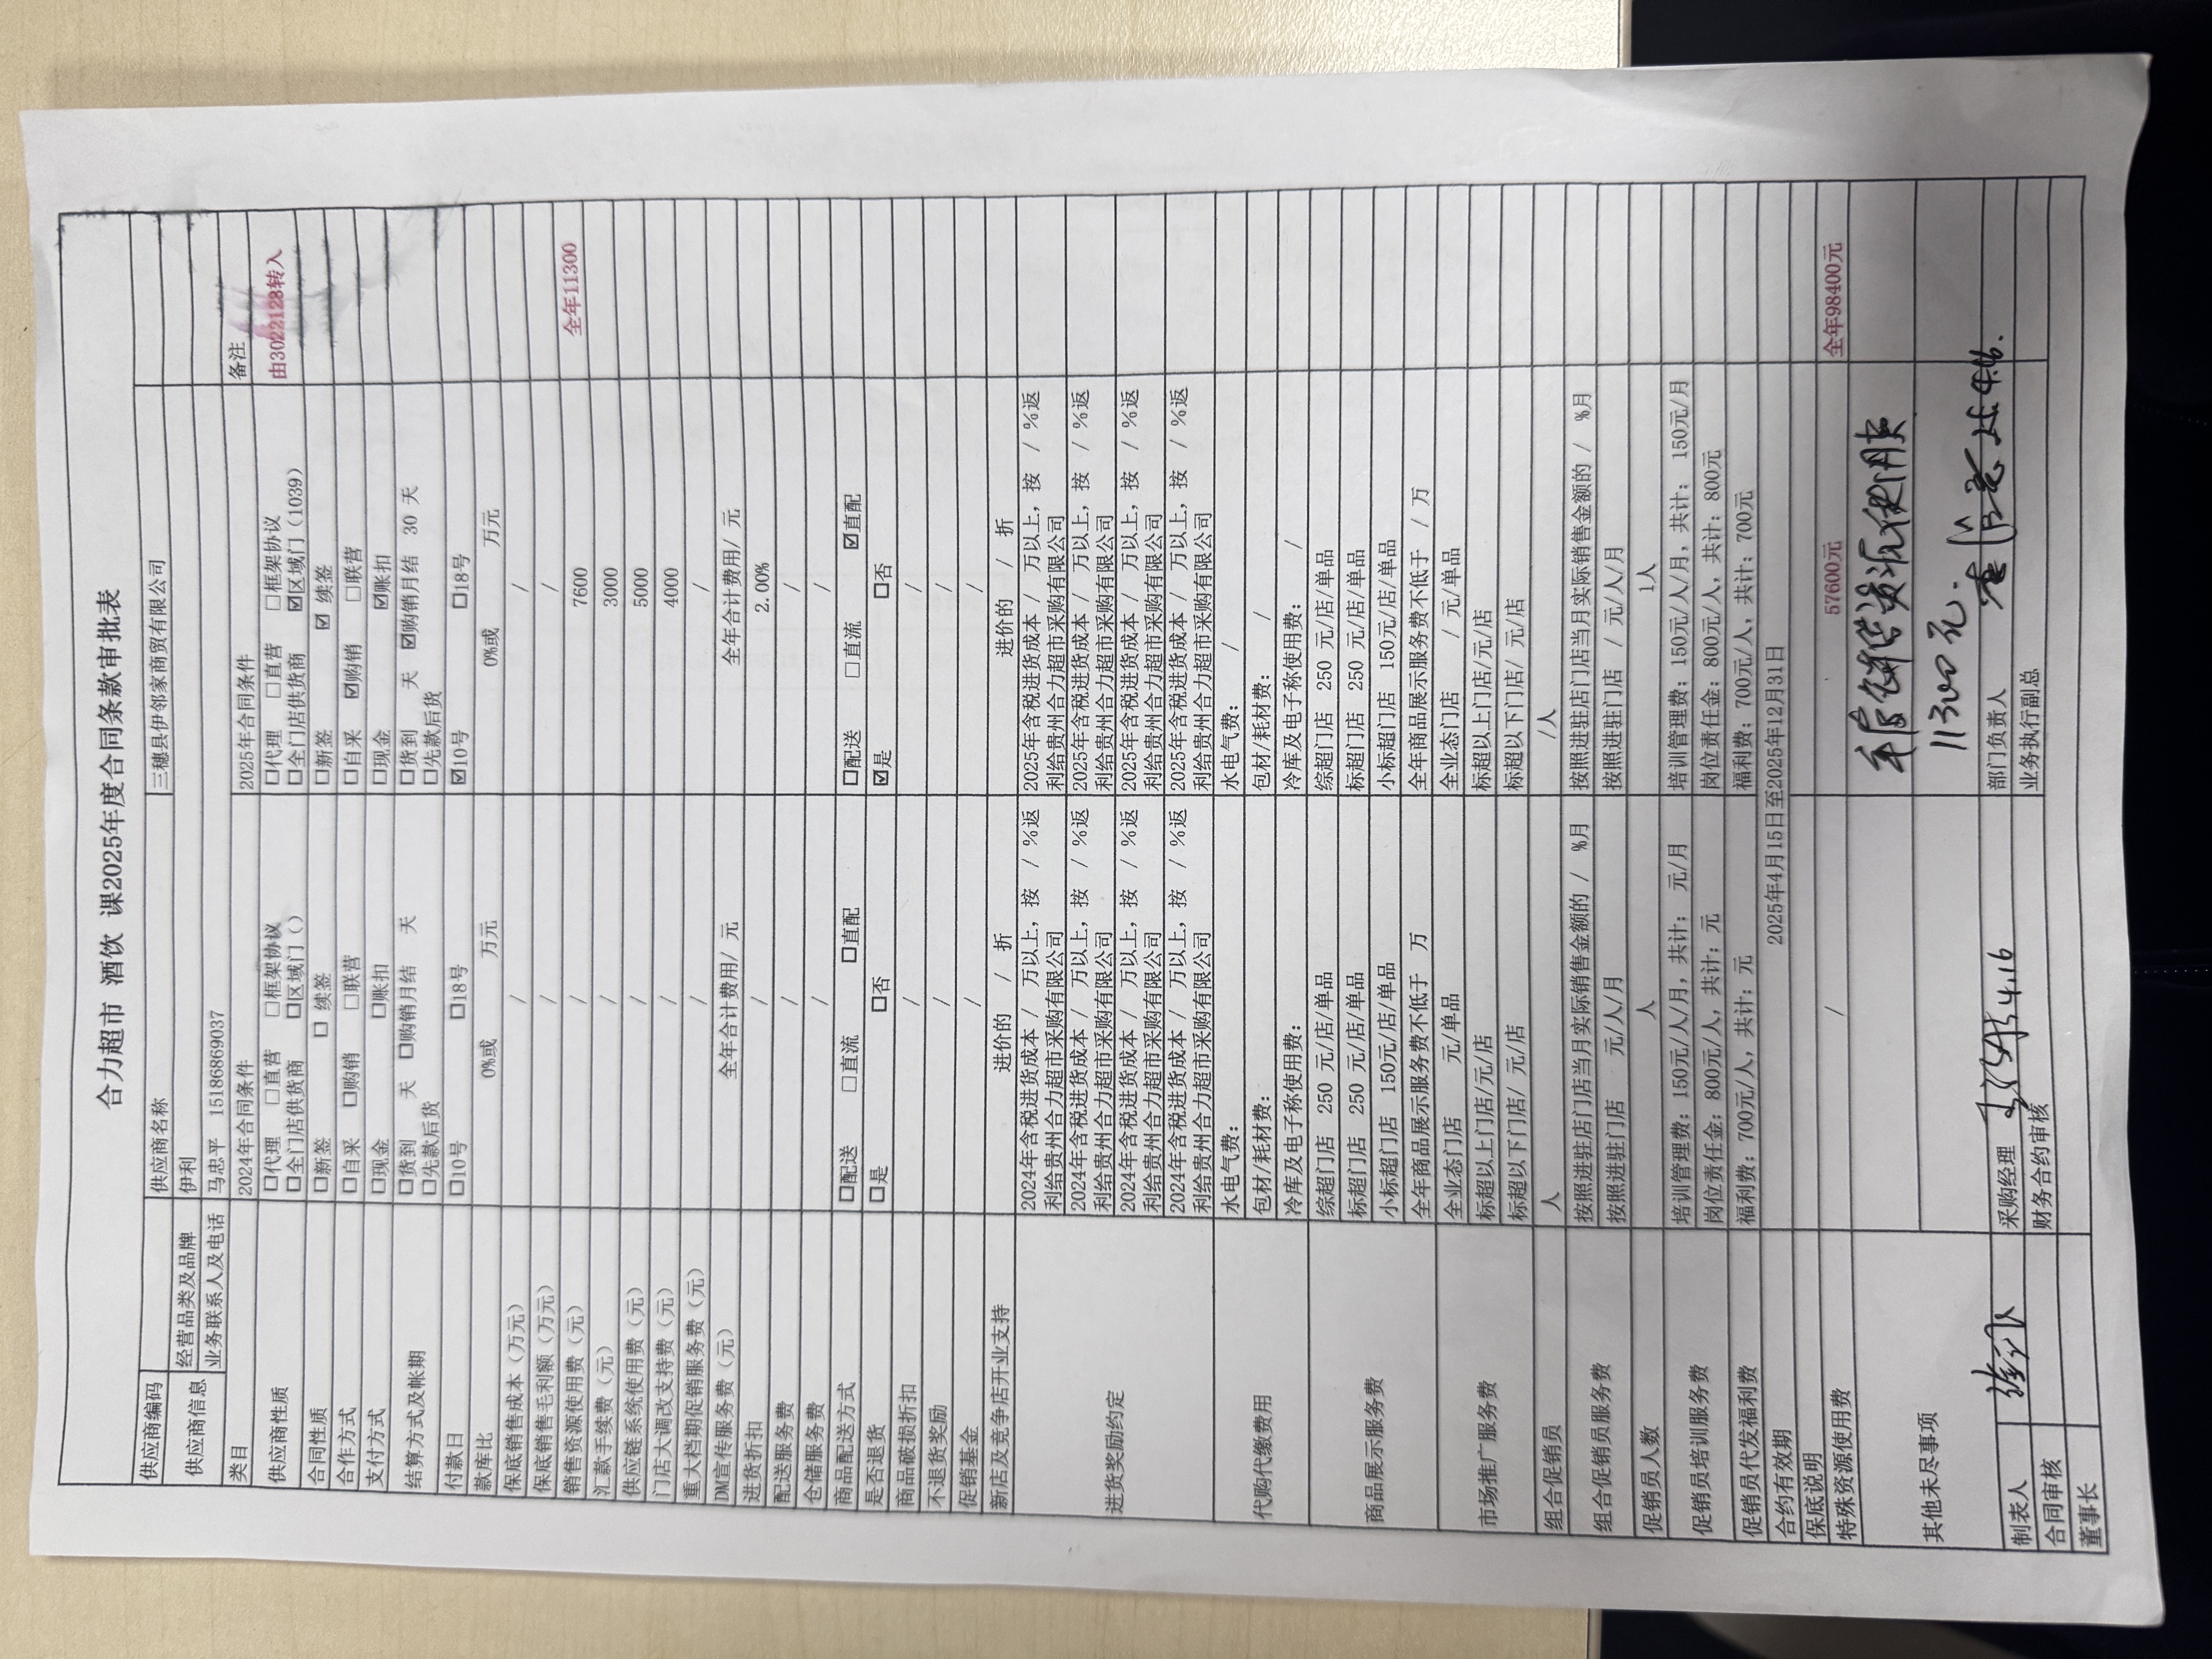 合力超市 酒饮 课2025年度合同条款审批表
供应商编码 供应商名称 三穗县伊邻家商贸有限公司
供应商信息 经营品类及品牌 伊利
业务联系人及电话 马忠平 15186869037
类目 2024年合同条件 2025年合同条件 备注
供应商性质 □代理 □直营 □框架协议 □代理 □直营 □框架协议 由3022128转入
□全门店供货商 □区域门() □全门店供货商 ☑区域门(1039)
合同性质 □新签 □ 续签 □新签 ☑ 续签
合作方式 □自采 □购销 □联营 □自采 ☑购销 □联营
支付方式 □现金 □账扣 □现金 ☑账扣
结算方式及帐期 □货到 天 □购销月结 天 □货到 天 ☑购销月结 30 天
□先款后货 □先款后货
付款日 □10号 □18号 ☑10号 □18号
款库比 0%或 万元 0%或 万元
保底销售成本(万元) / /
保底销售毛利额(万元) / /
销售资源使用费(元) / 7600 全年11300
汇款手续费(元) / 3000
供应链系统使用费(元) / 5000
门店大调改支持费(元) / 4000
重大档期促销服务费(元) / /
DM宣传服务费(元) 全年合计费用/ 元 全年合计费用/ 元
进货折扣 / 2.00%
配送服务费 / /
仓储服务费 / /
商品配送方式 □配送 □直流 □直配 □配送 □直流 ☑直配
是否退货 □是 □否 ☑是 □否
商品破损折扣 / /
不退货奖励 / /
促销基金 / /
新店及竞争店开业支持 进价的 / 折 进价的 / 折
进货奖励约定 2024年含税进货成本 / 万以上, 按 / %返 2025年含税进货成本 / 万以上, 按 / %返
利给贵州合力超市采购有限公司 利给贵州合力超市采购有限公司
2024年含税进货成本 / 万以上, 按 / %返 2025年含税进货成本 / 万以上, 按 / %返
利给贵州合力超市采购有限公司 利给贵州合力超市采购有限公司
2024年含税进货成本 / 万以上, 按 / %返 2025年含税进货成本 / 万以上, 按 / %返
利给贵州合力超市采购有限公司 利给贵州合力超市采购有限公司
2024年含税进货成本 / 万以上, 按 / %返 2025年含税进货成本 / 万以上, 按 / %返
利给贵州合力超市采购有限公司 利给贵州合力超市采购有限公司
代购代缴费用 水电气费: 水电气费: /
包材/耗材费: 包材/耗材费: /
冷库及电子称使用费: 冷库及电子称使用费: /
商品展示服务费 综超门店 250 元/店/单品 综超门店 250 元/店/单品
标超门店 250 元/店/单品 标超门店 250 元/店/单品
小标超门店 150元/店/单品 小标超门店 150元/店/单品
全年商品展示服务费不低于 万 全年商品展示服务费不低于 / 万
市场推广服务费 全业态门店 元/单品 全业态门店 / 元/单品
标超以上门店/元/店 标超以上门店/元/店
标超以下门店/ 元/店 标超以下门店/ 元/店
组合促销员 人 /人
组合促销员服务费 按照进驻店门店当月实际销售金额的 / %月 按照进驻店门店当月实际销售金额的 / %月
按照进驻门店 元/人/月 按照进驻门店 / 元/人/月
促销员人数 人 1人
促销员培训服务费 培训管理费: 150元/人/月, 共计: 元/月 培训管理费: 150元/人/月, 共计: 150元/月
岗位责任金: 800元/人, 共计: 元 岗位责任金: 800元/人, 共计: 800元
促销员代发福利费 福利费: 700元/人, 共计: 元 福利费: 700元/人, 共计: 700元
合约有效期 2025年4月15日至2025年12月31日
保底说明
特殊资源使用费 / 57600元 全年98400元
其他未尽事项
11300元.
制表人 采购经理 4.16 部门负责人
合同审核 财务合约审核 业务执行副总
董事长